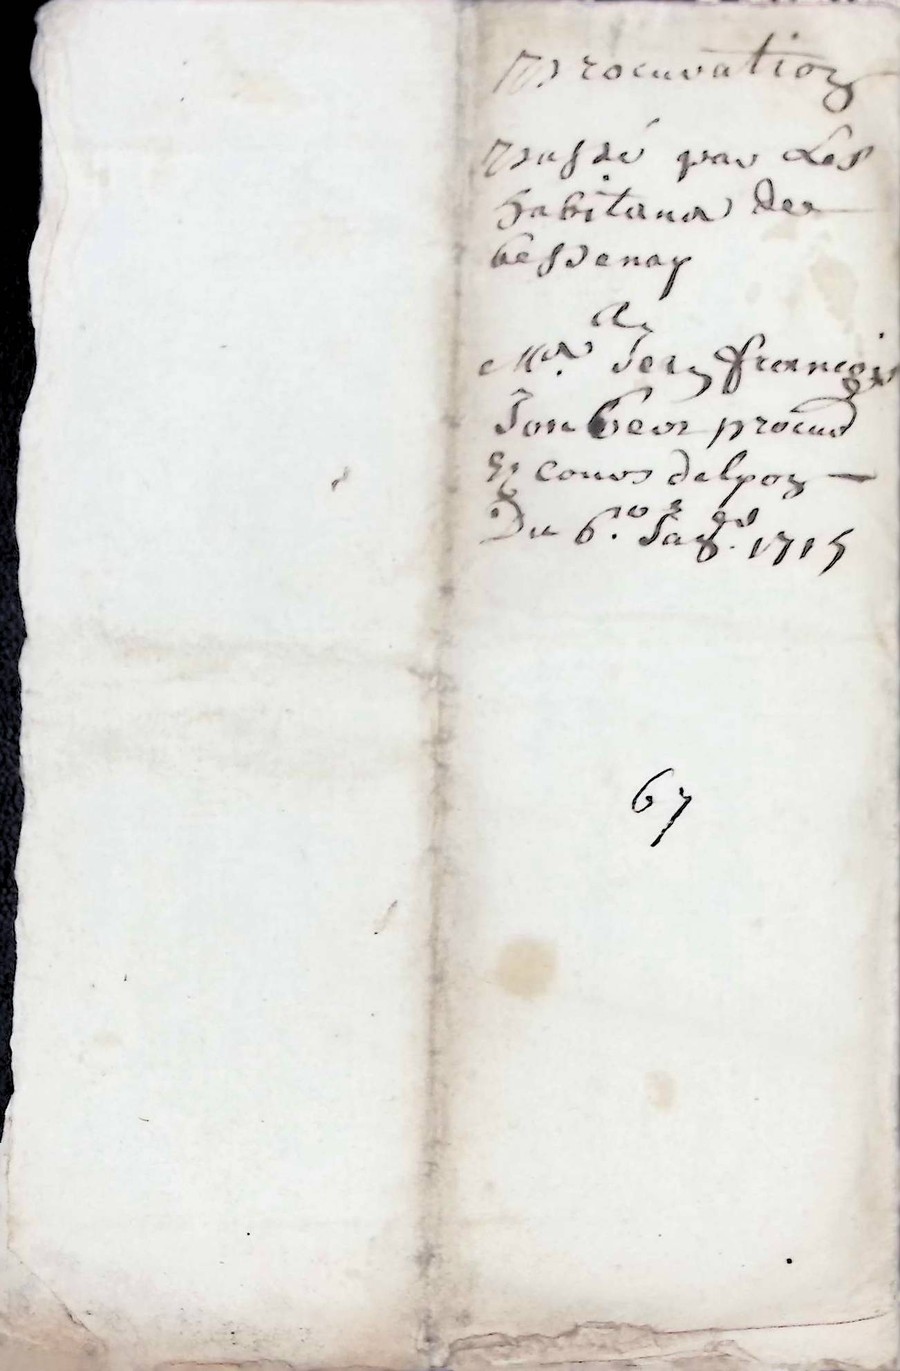 Procuration
passé par Les
habitans de
bessenay
A
Mre Jean francois
procur
Es cours de lyon
Du 6e 1715
67